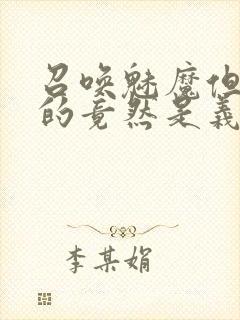 召唤魅魔但
的竟然是义
李某娟